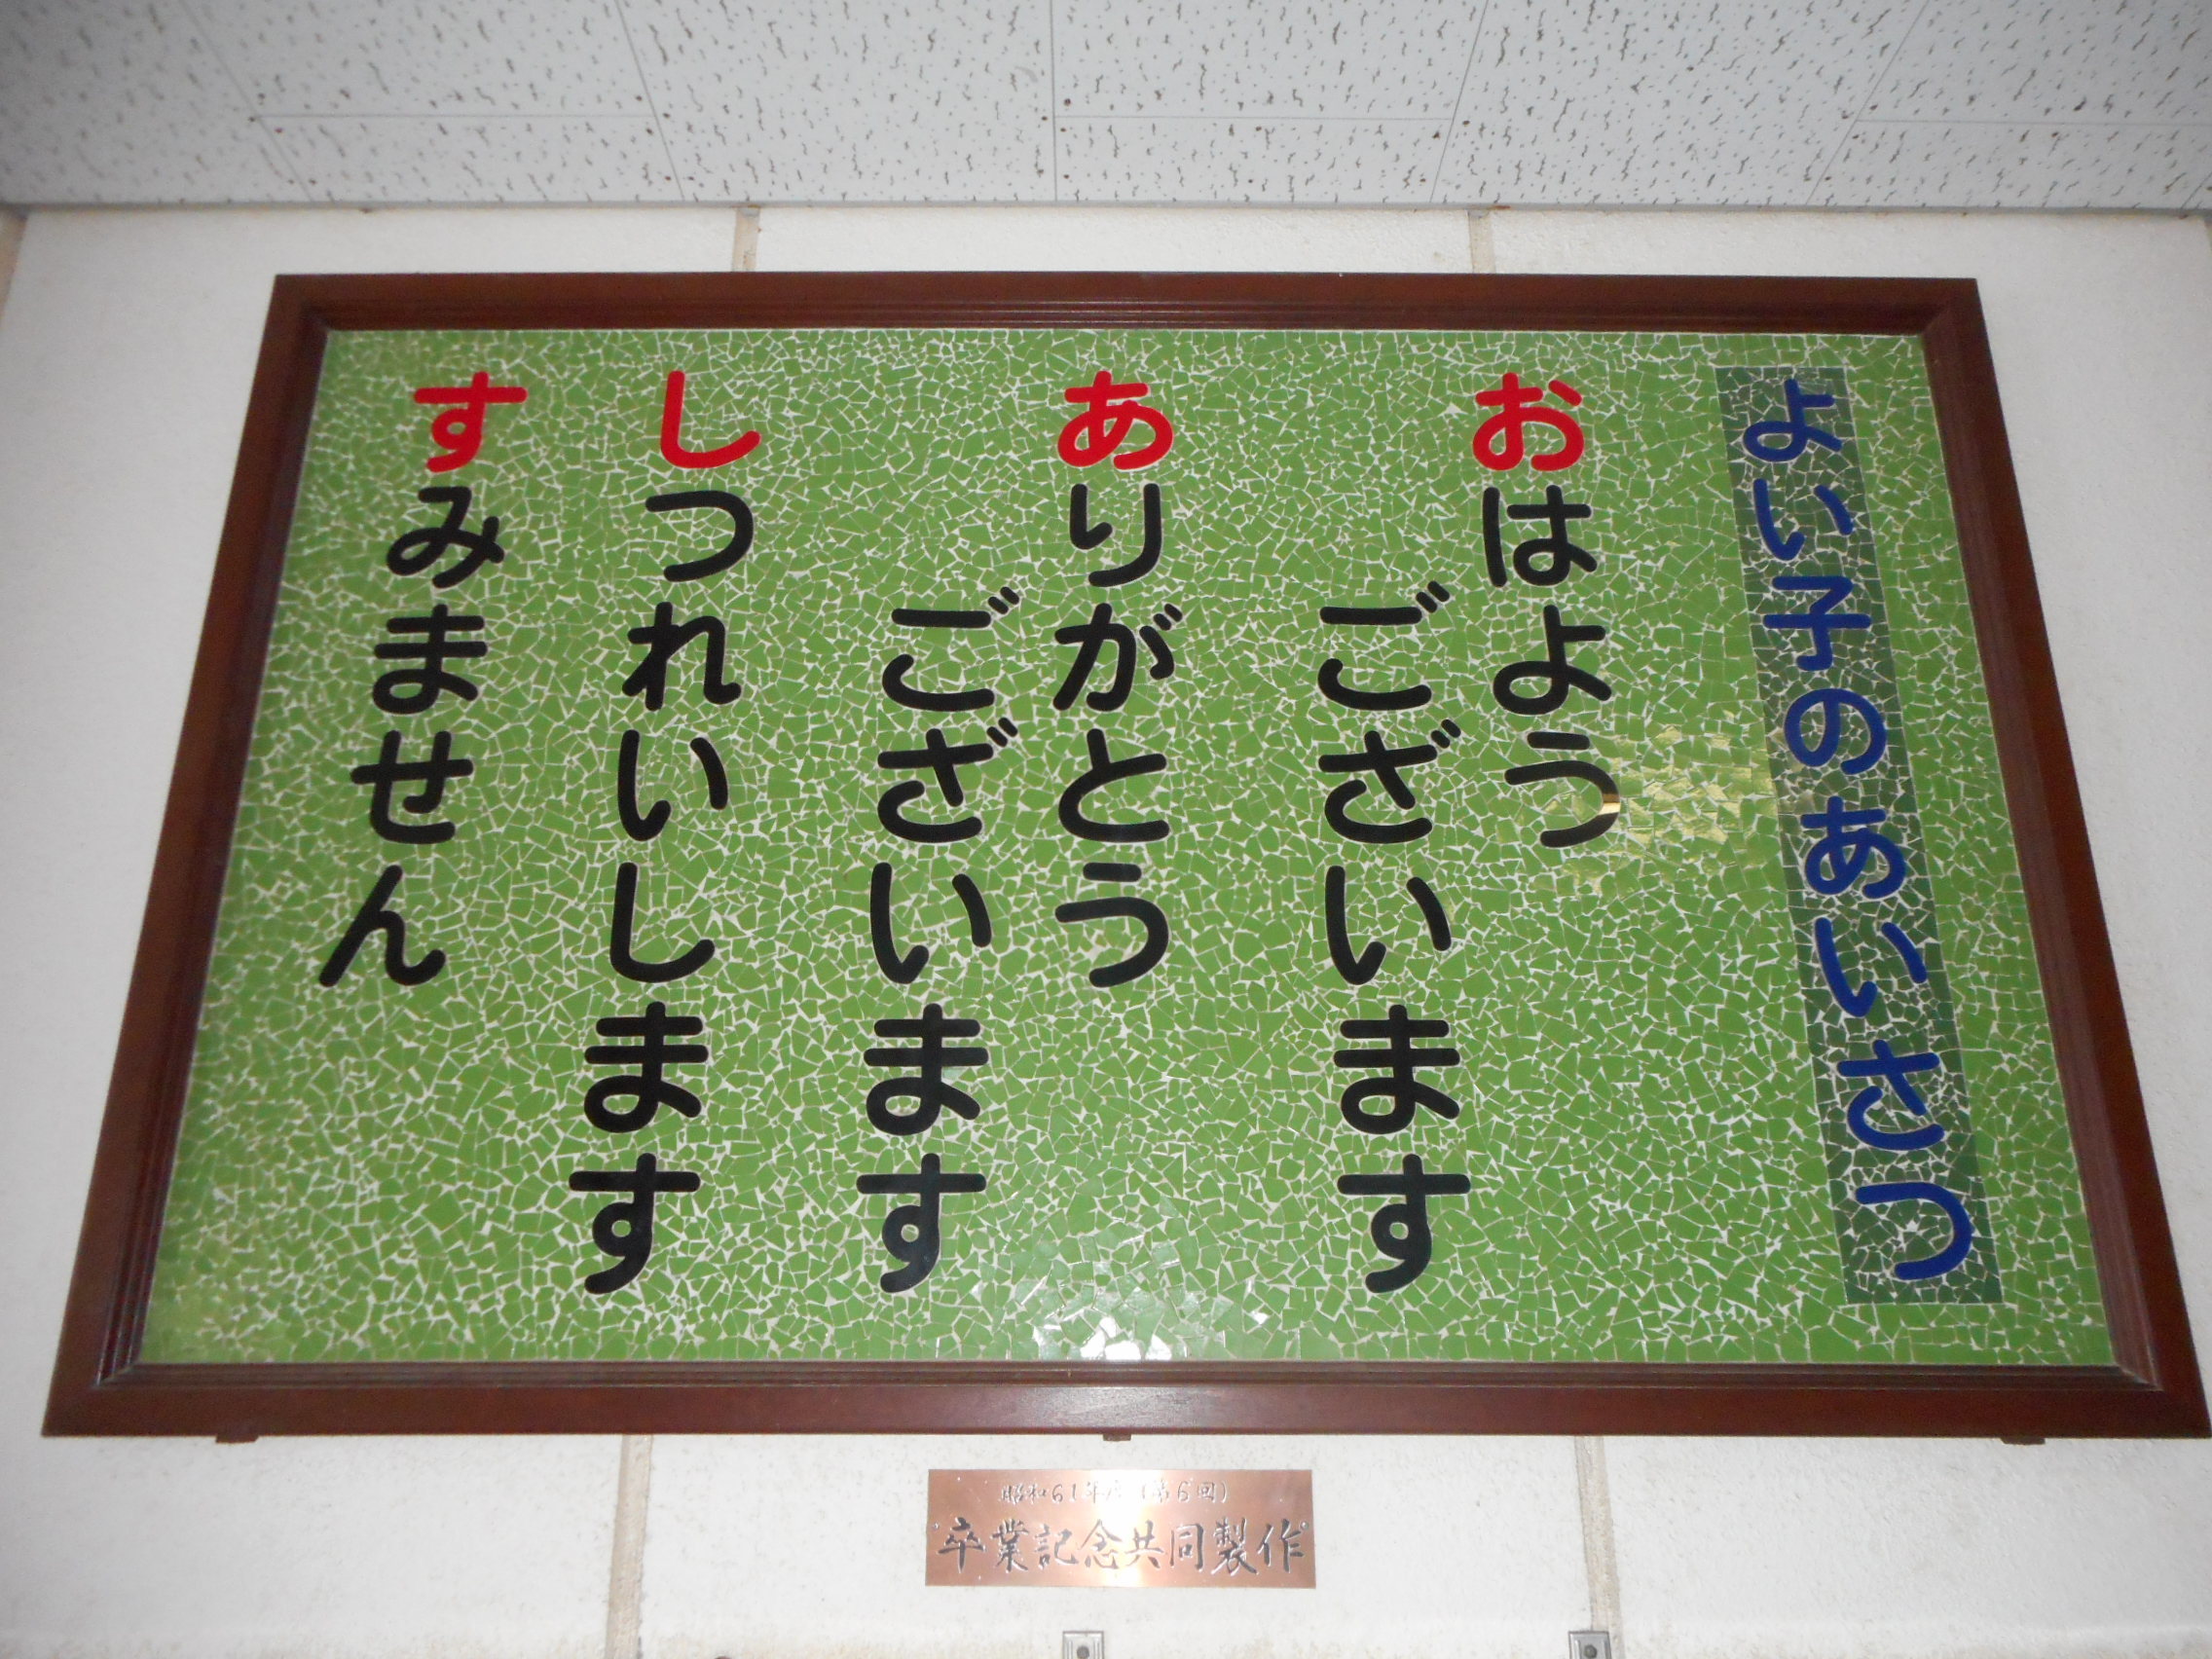 よい子のあいさつ
おはよう
ございます
ありがとう
ございます
しつれいします
すみません
昭和61年度（第6回）
"卒業記念共同製作"